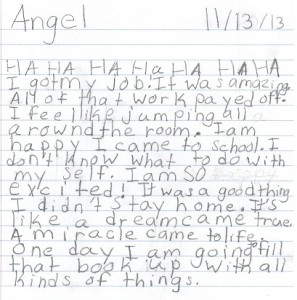 Angel 11/13/13
HA HA HA HaHA HAHA
I got my job. It was amazing
All of that work payed off.
I feel like jumping all a
around the room. I am
happy I came to school. I
don't know what to do with
my self. I am SO
excited! It was a good thing
I didn't stay home. It's
like a dream came true.
A miracle came to life.
One day I am going fill
that book up with all
kinds of things.